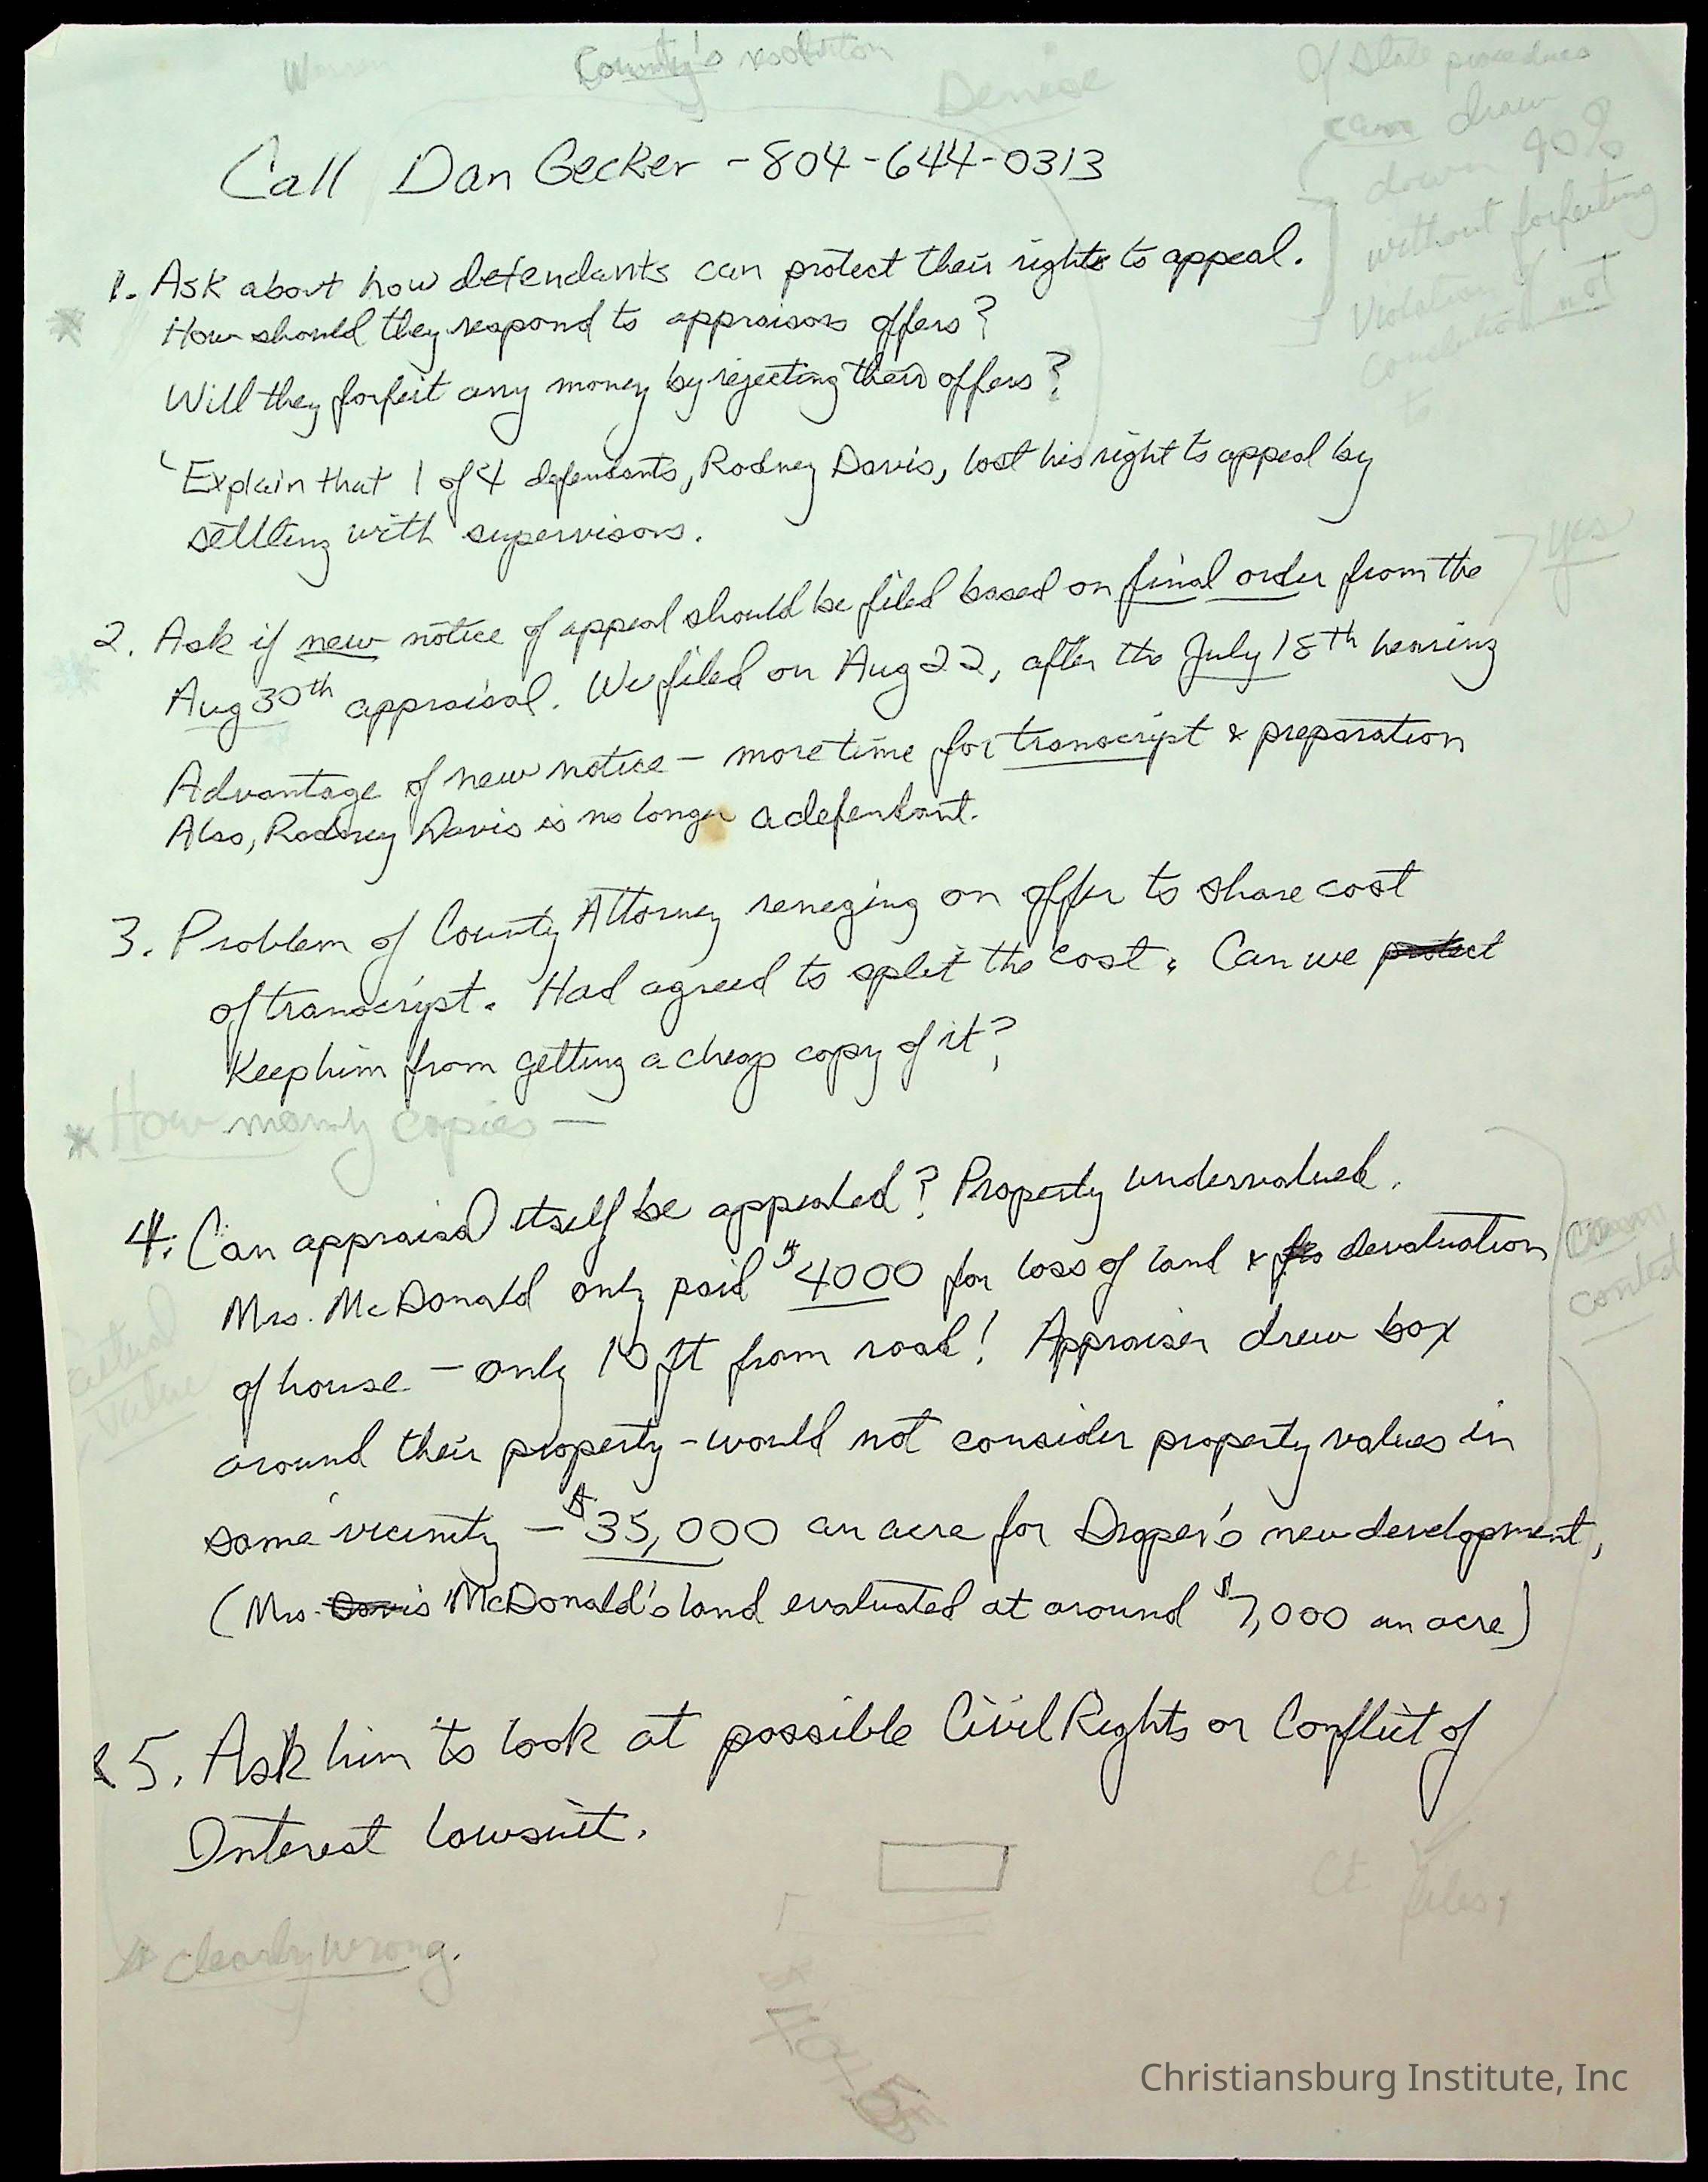 Warren
County's resolution
Denise
If State procedures
can draw
down 90%
without forfeiting
Call Dan Gecker - 804-644-0313
1. Ask about how defendants can protect their rights to appeal.
How should they respond to appraisors offers?
Will they forfeit any money by rejecting their offers?
Explain that 1 of 4 defendants, Rodney Davis, lost his right to appeal by
settling with supervisors.
yes
2. Ask if new notice of appeal should be filed based on final order from the
Aug 30th appraisal. We filed on Aug 22, after the July 18th hearing
Advantage of new notice - more time for transcript & preparation
Also, Rodney Davis is no longer a defendant.
3. Problem of County Attorney reneging on offer to share cost
of transcript. Had agreed to split the cost. Can we protect
Keep him from getting a cheap copy of it?
* How many copies —
4. Can appraisal itself be appealed? Property undervalued.
Mrs. McDonald only paid $4000 for loss of land & devaluation
of house - only 10 ft from road! Appraiser drew box
around their property - would not consider property values in
same vicinity - $35,000 an acre for Draper's new development,
(Mrs. Davis McDonald's land evaluated at around $7,000 an acre)
actual
value
5. Ask him to look at possible Civil Rights or Conflict of
Interest lawsuit.
Ct
* clearly wrong.
Christiansburg Institute, Inc